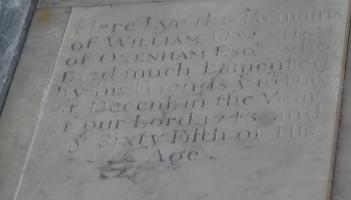 Here Lye the Remains
of WILLIAM OXENHAM
of OXENHAM Esq. who
Died much Lamented
by his Friends ye 10 Day
of Decembr in the Year
of our Lord 1743 and
ye Sixty Fifth of His
Age.